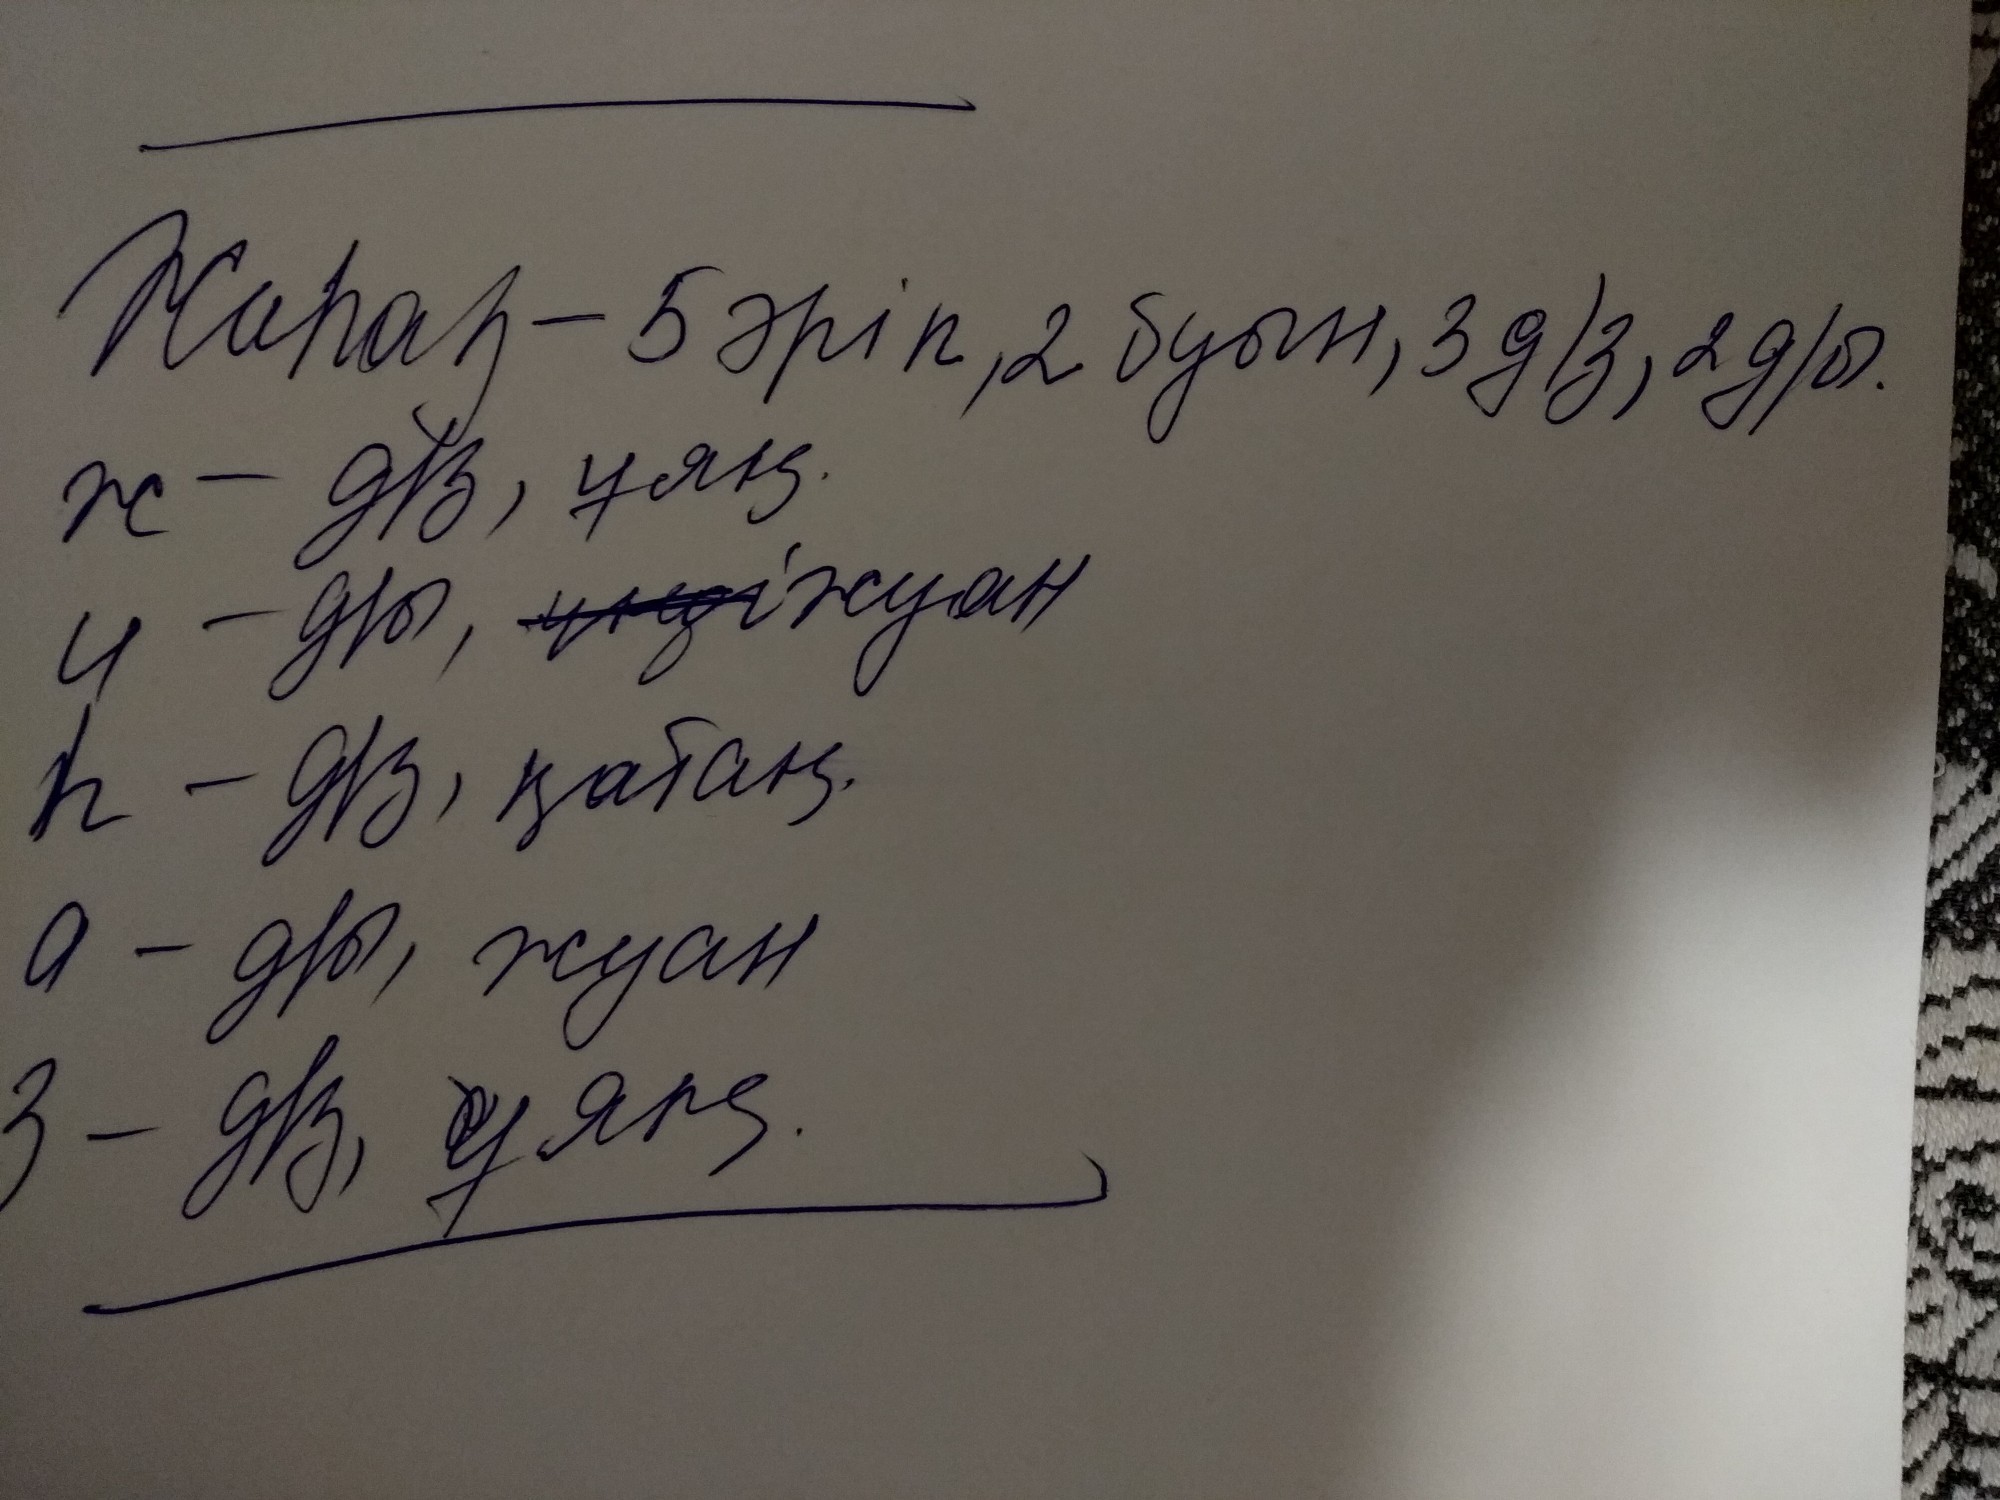 Жиһаз – 5 әріп, 2 буын, 3 д/з, 2 д/ы.
ж – д/з, ұяң.
и – д/ы, жуан
һ – д/з, қатаң.
а – д/ы, жуан
з – д/з, ұяң.